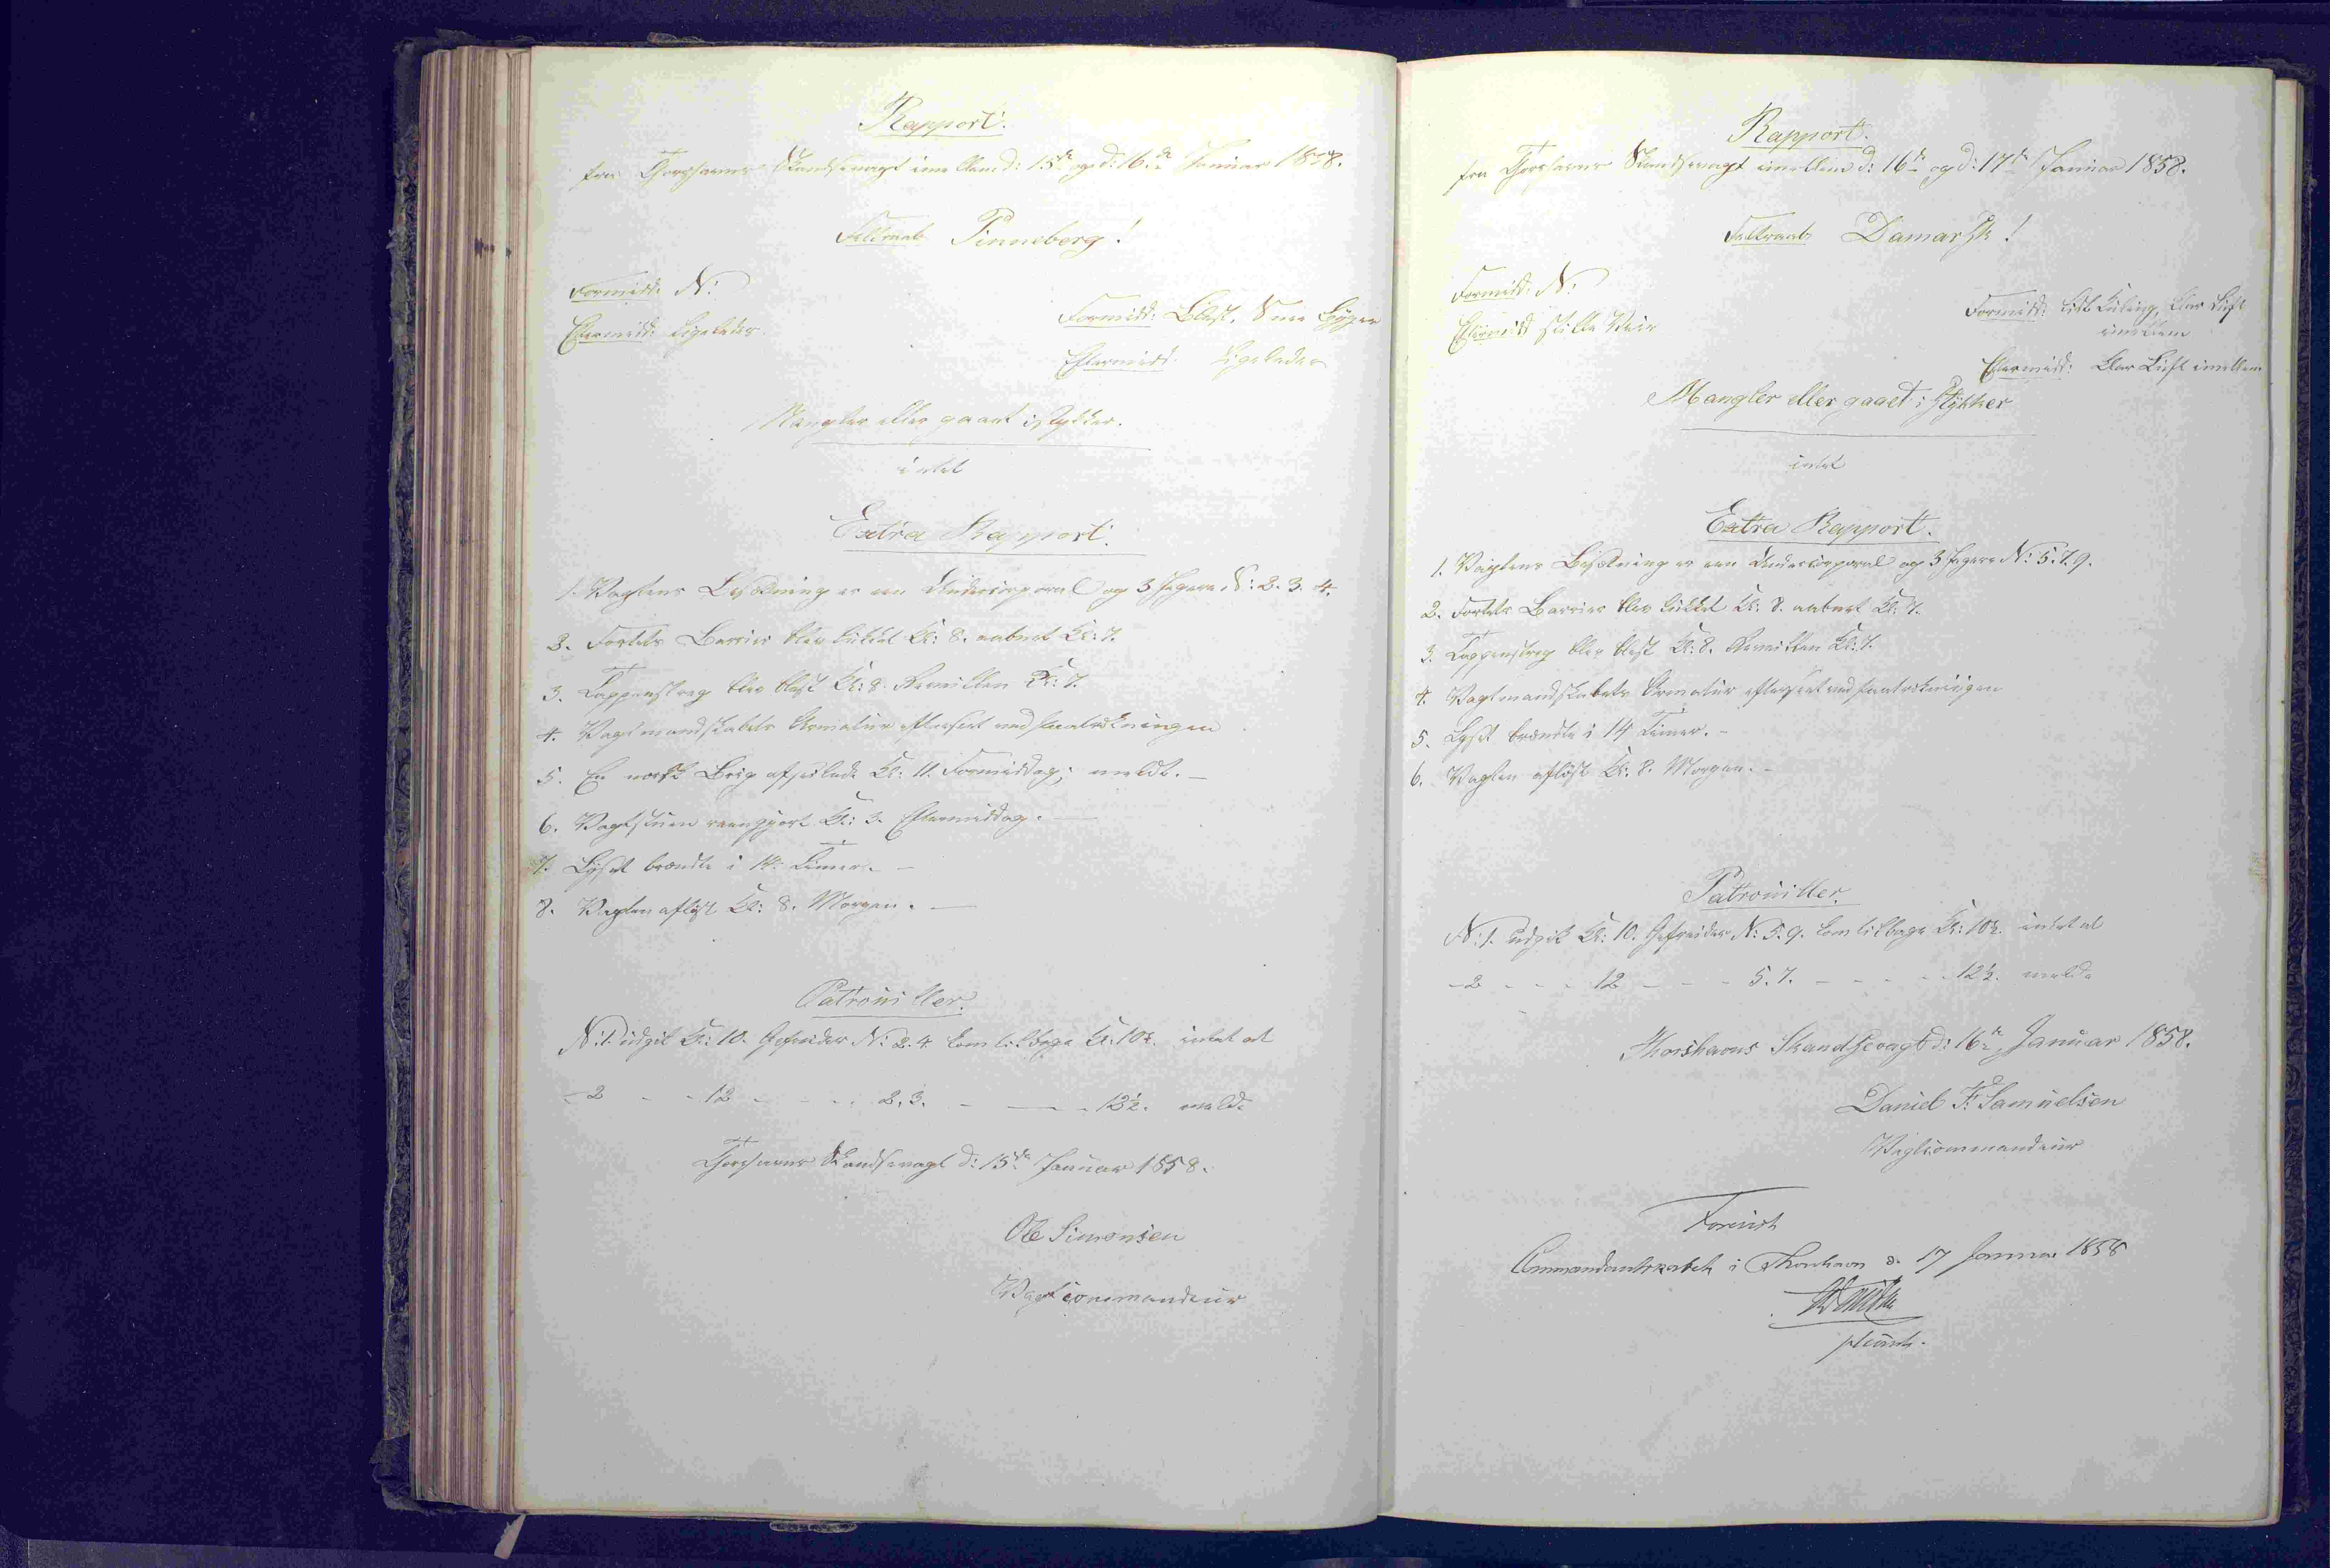 Rapport.
fra Thorshavns Skandsevagt imellem d: 15de og d: 16de Januar 1858.
Feltraab Pinneberg!
Formidd: N:
Eftermidd: ligeledes.
Formidd: Blæst, Snee Byger
Eftermidd: Ligeledes
Mangler eller gaaet i stykker.
intet
Extra Rapport.
1. Vagtens Besætning er een Undercorporal og 3 Jægere N: 2. 3. 4.
2. Fortets Barrier blev lukket Kl: 8. aabnet Kl: 7.
3. Tappenstreg blev blæst Kl: 8. Revellien Kl: 7.
4. Vagtmandskabets Armatur efterseet ved Fratrædningen
5. En norsk Brig afseilede Kl: 11. Formiddag; meldt. -
6. Vagtstuen reengjort Kl: 3. Eftermiddag. -
7. Lyset brændte i 14 Timer. -
8. Vagten afløst Kl: 8. Morgen. -
Patrouiller.
N: 1. udgik Kl: 10. Gefreider N: 2. 4. kom tilbage Kl: 10½. intet at
- 2 - - 12 - - - 2. 3. - - - 12½. melde
Thorshavns Skandsevagt d: 15de Januar 1858.
Ole Simonsen
Vagtcommandeur
Rapport.
fra Thorshavns Skandsevagt imellem d: 16de og d: 17de Januar 1858.
Feltraab Damark!
Formidd: N:
Eftermidd stille Veir
Formidd: lidt Kuling, klar Luft
imellem
Eftermidd: klar Luft imellem
Mangler eller gaaet i stykker
intet
Extra Rapport.
1. Vagtens Besætning er een Undercorporal og 3 Jægere N: 5. 7. 9.
2. Fortets Barrier blev lukket Kl: 8. aabnet Kl: 7.
3. Tappenstreg blev blæst Kl: 8. Revellien Kl: 7.
4. Vagtmandskabets Armatur efterseet ved Fratrædningen
5. Lyset brændte i 14 Timer. -
6. Vagten afløst Kl: 8. Morgen. -
Patrouiller.
N: 1. udgik Kl: 10. Gefreider N: 5. 9. kom tilbage Kl: 10½. intet at
- 2 - - - 12 - - - 5. 7. - - - - 12½. melde
Thorshavns Skandsevagt d: 16de Januar 1858.
Daniel Fd. Samuelsen
Vagtcommandeur
Forevist
Commandantskabet i Thorshavn d. 17 Januar 1858